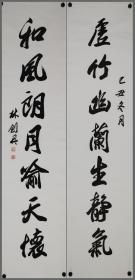 虛竹幽蘭生靜氣
己丑冬月
和風朗月喻天懷